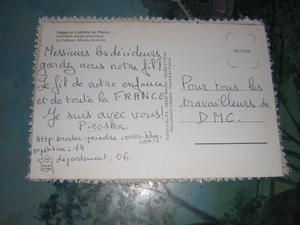 Images et Lumières de France
Messieurs les décideurs
gardez nous notre fil,
le fil de notre enfance
et de toute la FRANCE
Je suis avec vous!
Piroska.
http broder-peindre.over-blog
.com
n° pétition: 14
département: 06.
Pour tous les
travailleurs de
D.M.C.